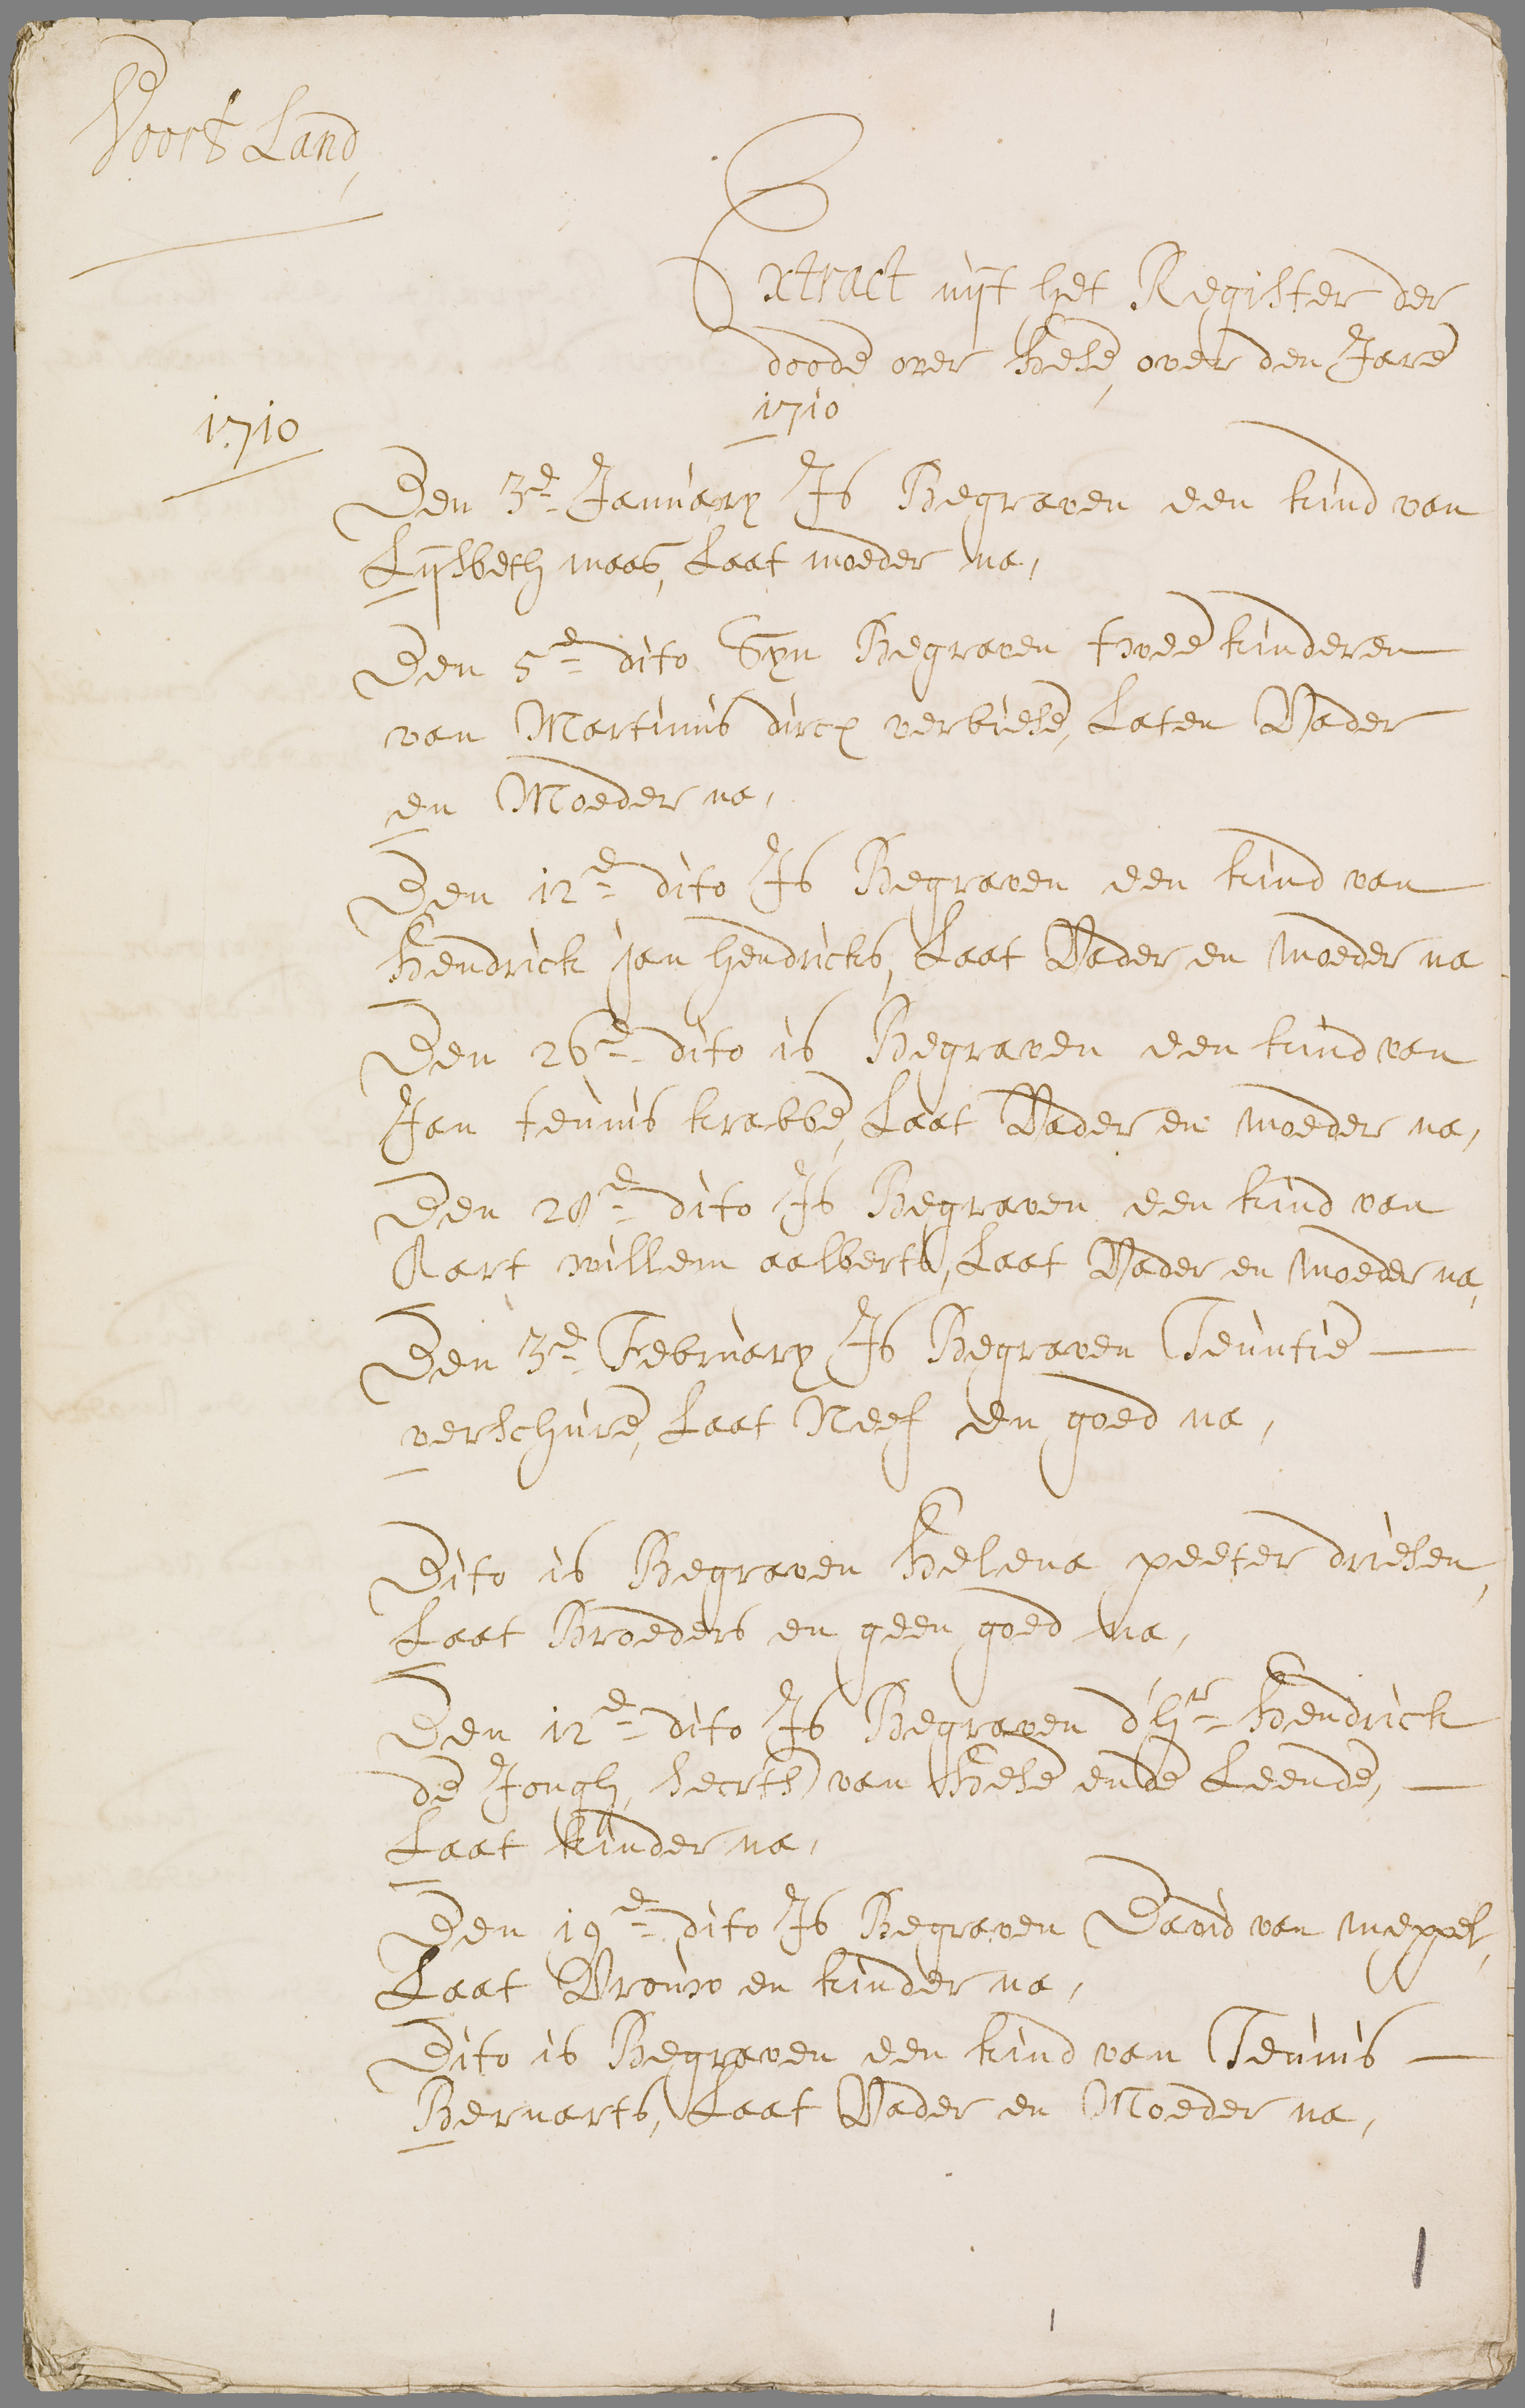 Voor't Land,
Extract uijt het Register der
doode over Hese, over den Jare
1710
1710
Den 3.e January Is Begraven een kind van
Lijsbeth maas, Laat moeder na,
Den 5.e dito Syn Begraven twee kinderen
van Martinus dircx verbiese, Laten Vader
en Moeder na,
Den 12.e dito Is Begraven een kind van
Hendrick jan hendricks, Laat Vader en moeder na
Den 26.e dito is Begraven een kind van
Jan teunis krabbe, Laat Vader en moeder na,
Den 28.e dito Is Begraven een kind van
Aart willem aalberts, Laat Vader en moeder na,
Den 3.e February Is Begraven Teuntie
verschure, Laat Neef en goed na,
Dito is Begraven Helena peeter driesen,
Laat Broeders en geen goed na,
Den 12.e dito Is Begraven d'hr. Hendrick
de Jongh, secrts van Hese ende Leende,
Laat kinder na,
Den 19.e dito Is Begraven David van meppel,
Laat Vrouw en kinder na,
Dito is Begraven een kind van Teunis
Bernarts, Laat Vader en Moeder na,
1
1